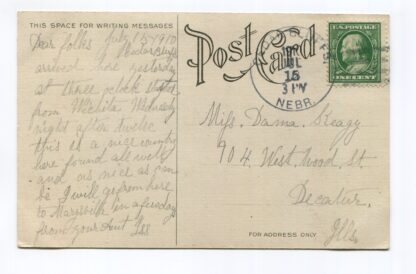 THIS SPACE FOR WRITING MESSAGES
Dear folks July 15 1910
arrived here yesterday
at three oclock
from Wichita
night after twelve
this is a nice country
here found all well
and as nice as can
be I will go from here
to Marysville in a few days
from your Aunt
Post Card
15
3 PM
NEBR.
U.S. POSTAGE
ONE CENT
Miss. Dama. Keagy
904. West. Wood. St
Decatur.
Ills.
FOR ADDRESS ONLY